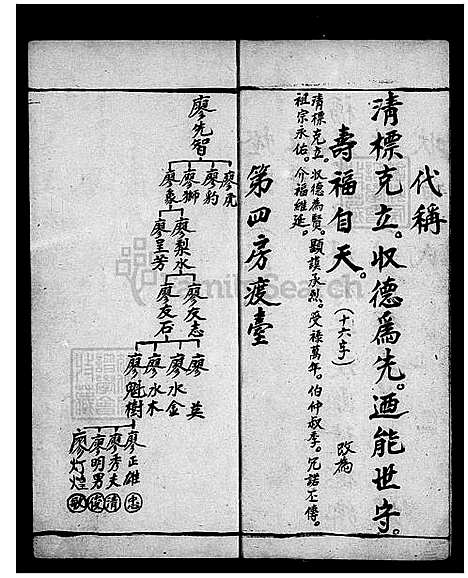 代稱
清標克立。収德為先。迺能世守。
壽福自天。(十六字) 改為
清標克立。収德為賢。顯謨承烈。受祿萬年。伯仲叔季。冗諾丕傳。
祖宗永佑。介福維延。
第四房渡臺
廖先智
廖虎
廖豹
廖獅
廖
廖梨水
廖呈芳
廖友志
廖友石
廖英
廖水金
廖水木
廖魁樹
廖正雄 忠
廖秀夫 清
廖明男 俊
廖灯煌 敏
FamilySearch